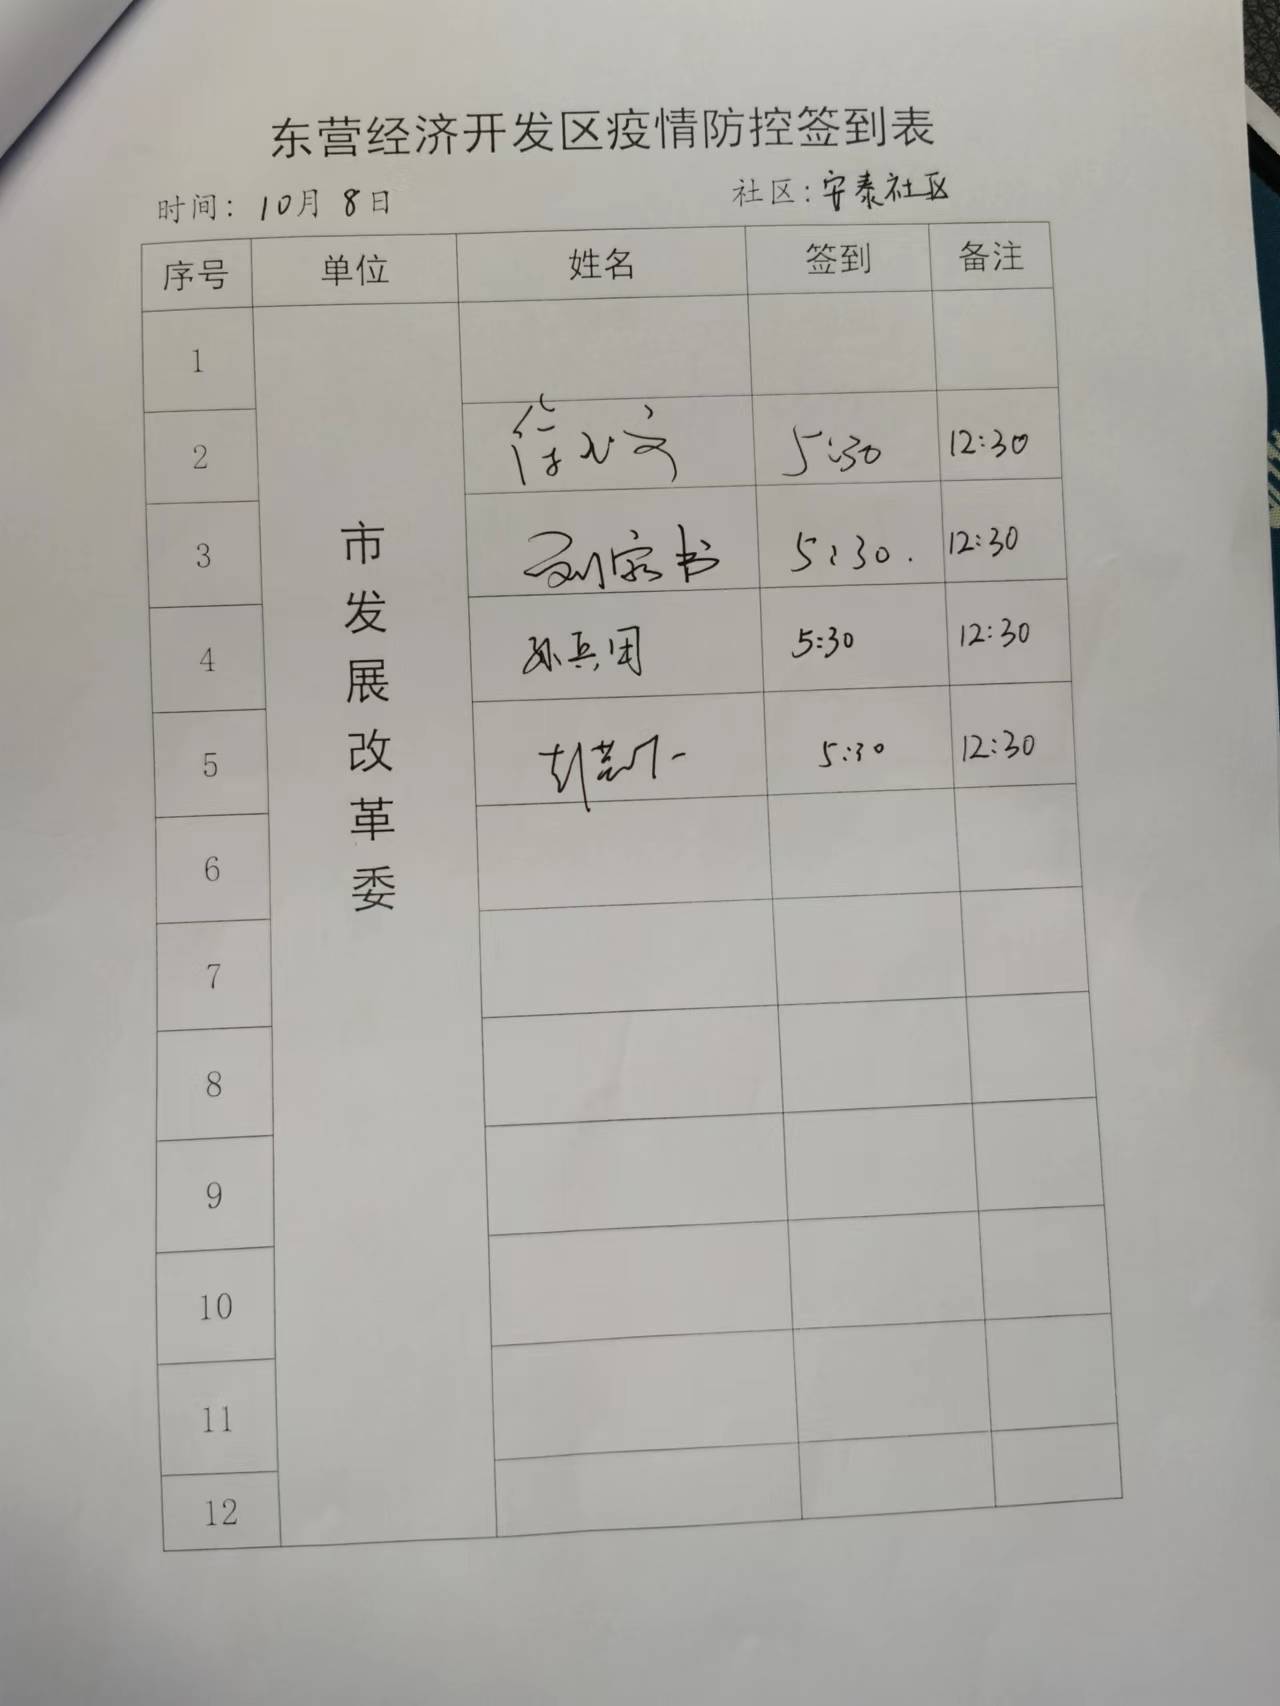 东营经济开发区疫情防控签到表
时间：10月8日 社区：安泰社区
序号 单位 姓名 签到 备注
市发展改革委
1
2 5:30 12:30
3 刘家书 5:30. 12:30
4 孙兵团 5:30 12:30
5 5:30 12:30
6
7
8
9
10
11
12